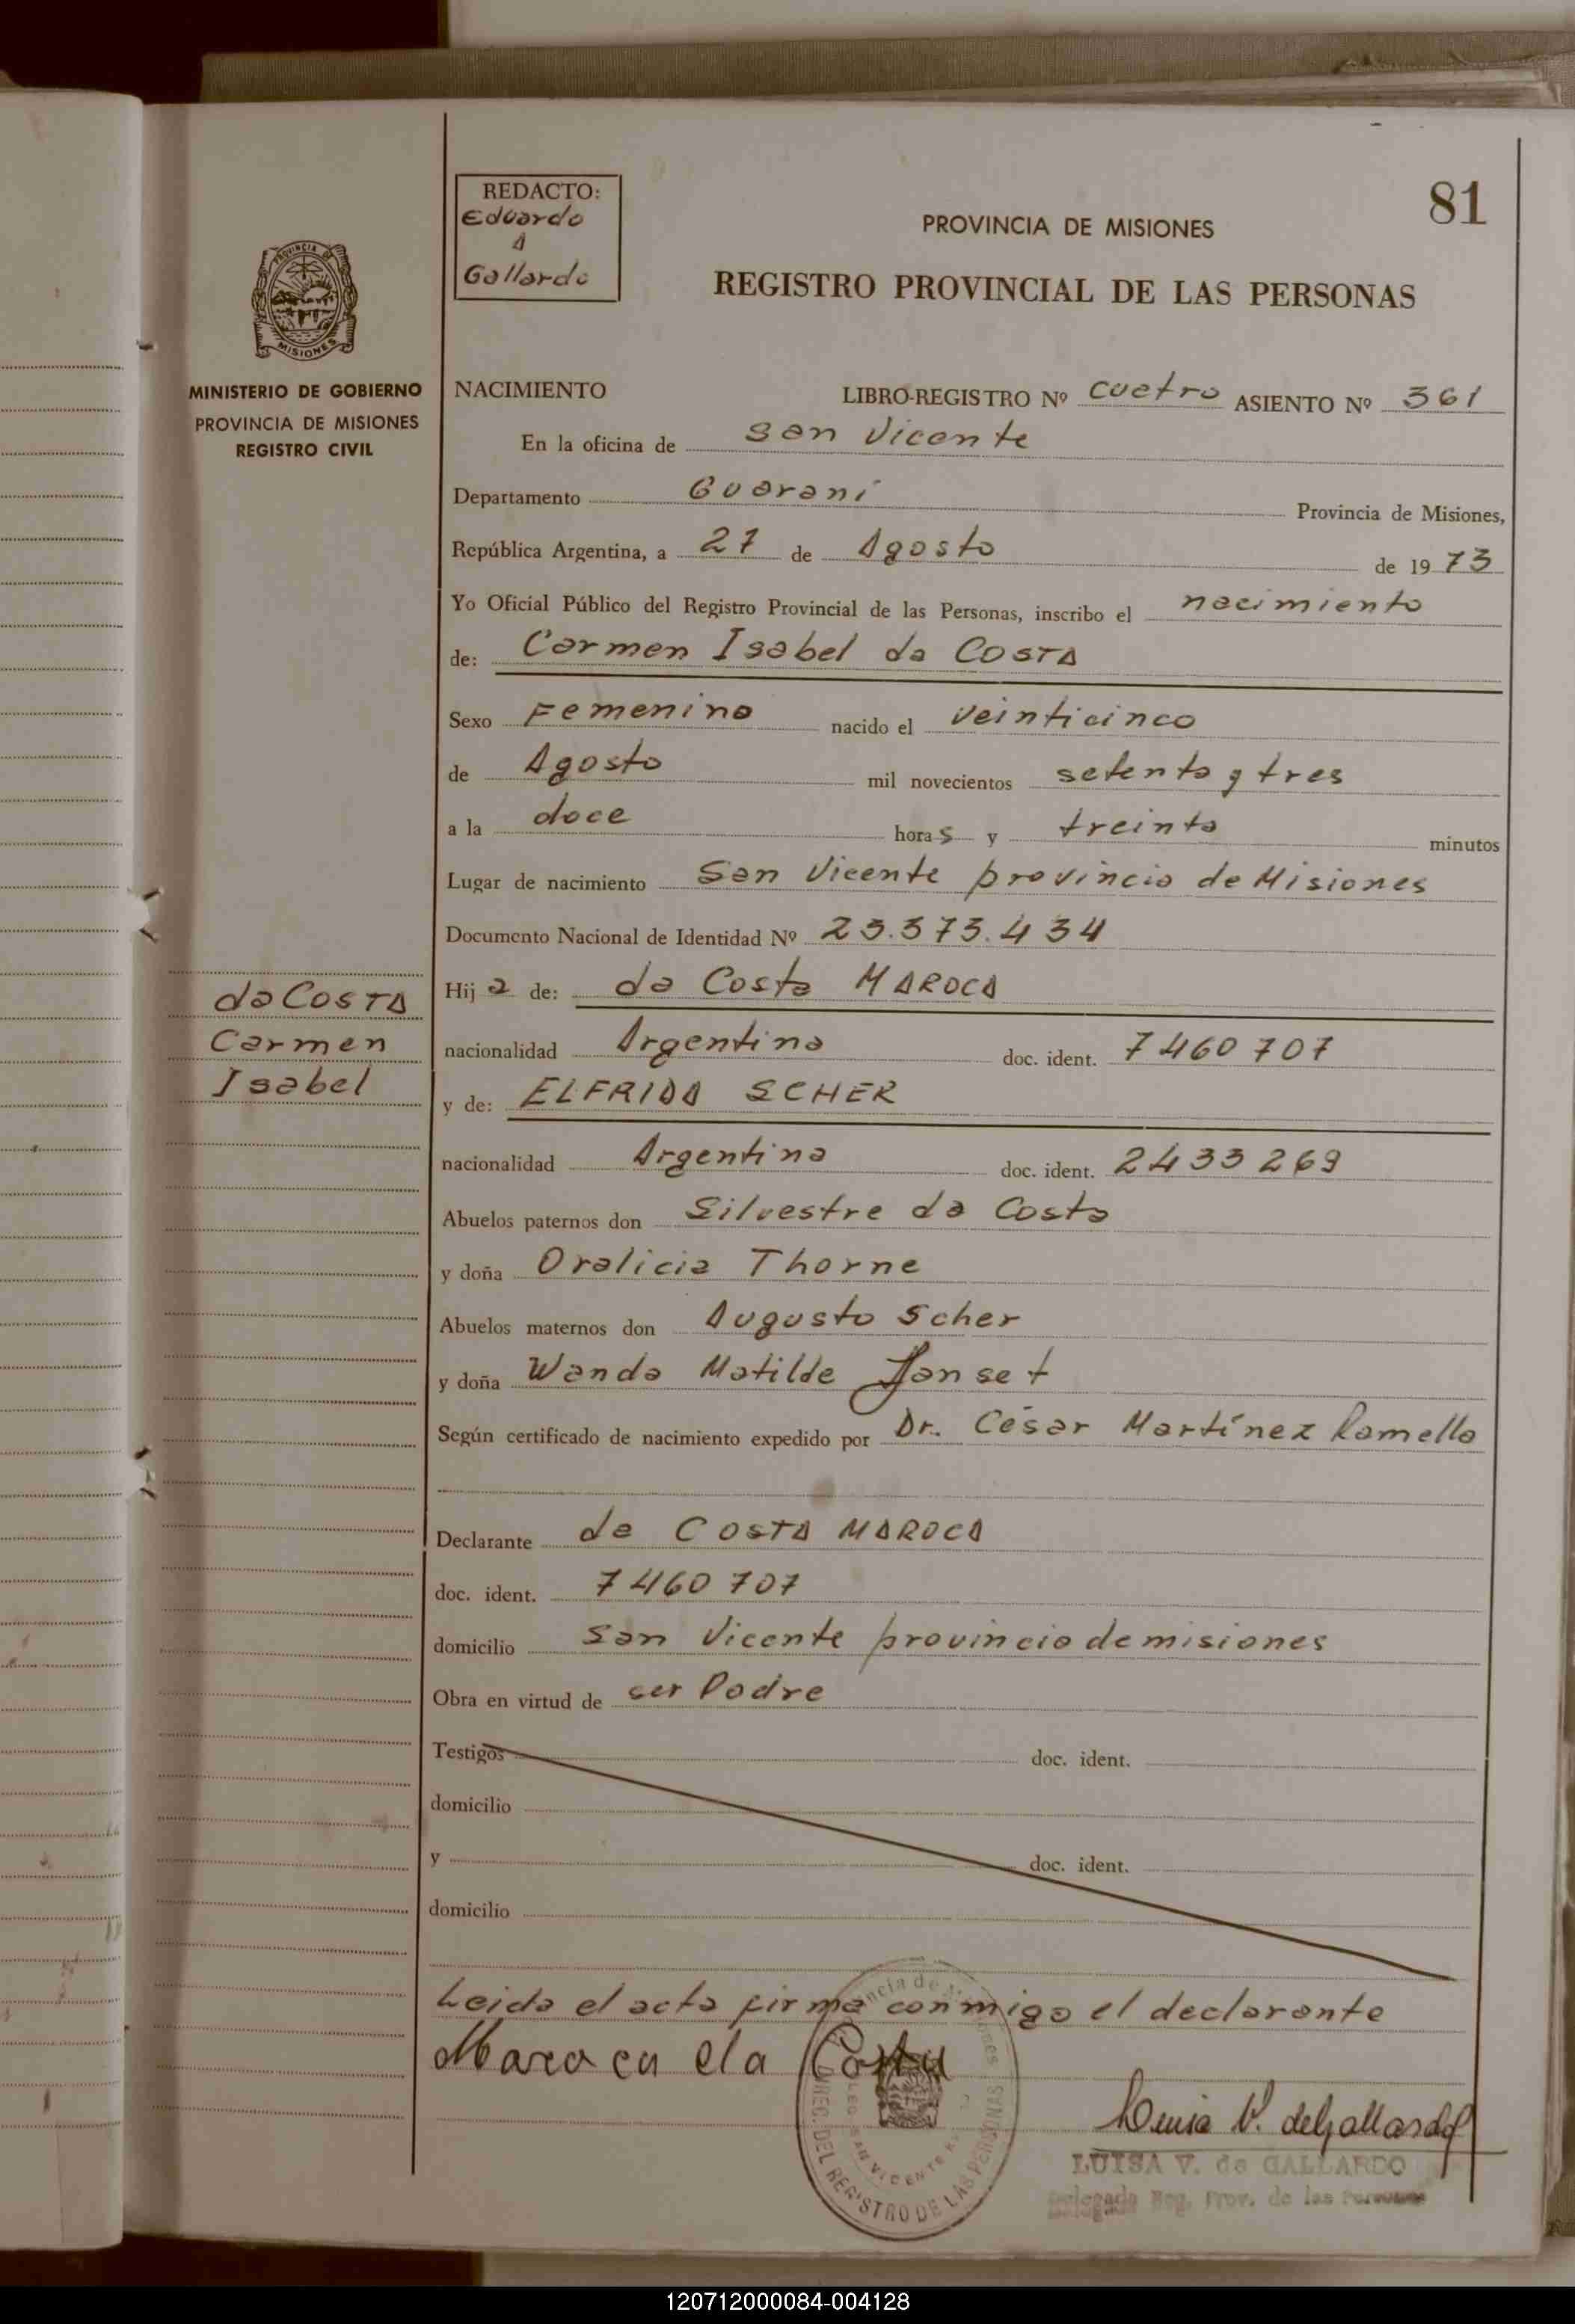 81
REDACTO:
Eduardo
A
Gallardo
PROVINCIA DE MISIONES
REGISTRO PROVINCIAL DE LAS PERSONAS
PROVINCIA DE
MISIONES
MINISTERIO DE GOBIERNO
PROVINCIA DE MISIONES
REGISTRO CIVIL
NACIMIENTO LIBRO-REGISTRO Nº cuatro ASIENTO Nº 361
En la oficina de San Vicente
Departamento Guaraní Provincia de Misiones,
República Argentina, a 27 de Agosto de 1973
Yo Oficial Público del Registro Provincial de las Personas, inscribo el nacimiento
de: Carmen Isabel da COSTA
Sexo Femenino nacido el veinticinco
de Agosto mil novecientos setenta y tres
a la doce horas y treinta minutos
Lugar de nacimiento San Vicente provincia de Misiones
Documento Nacional de Identidad Nº 23.373.434
da COSTA
Carmen
Isabel
Hija de: da Costa MAROCA
nacionalidad Argentina doc. ident. 7460707
y de: ELFRIDA SCHER
nacionalidad Argentina doc. ident. 2433269
Abuelos paternos don Silvestre da Costa
y doña Oralicia Thorne
Abuelos maternos don Augusto Scher
y doña Wanda Matilde Janset
Según certificado de nacimiento expedido por Dr. César Martínez Ramella
Declarante da COSTA MAROCA
doc. ident. 7460707
domicilio San Vicente provincia de misiones
Obra en virtud de ser Padre
Testigos doc. ident.
domicilio
y doc. ident.
domicilio
Leida el acta firma conmigo el declarante
Maroca da Costa
Luisa V. de Gallardo
LUISA V. de GALLARDO
Delegada Reg. Prov. de las Personas
DIREC. DEL REGISTRO DE LAS PERSONAS
SAN VICENTE
120712000084-004128